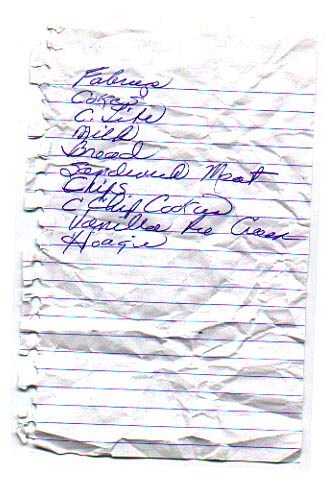 Fabreze
Cokes
C. Lite
Milk
Bread
Sandwich Meat
Chips
C Chip Cookies
Vanilla Ice Cream
Hoagie